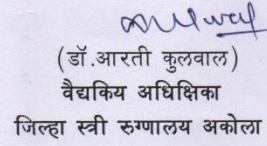 (डॉ.आरती कुलवाल)
वैद्यकिय अधिक्षिका
जिल्हा स्त्री रुग्णालय अकोला